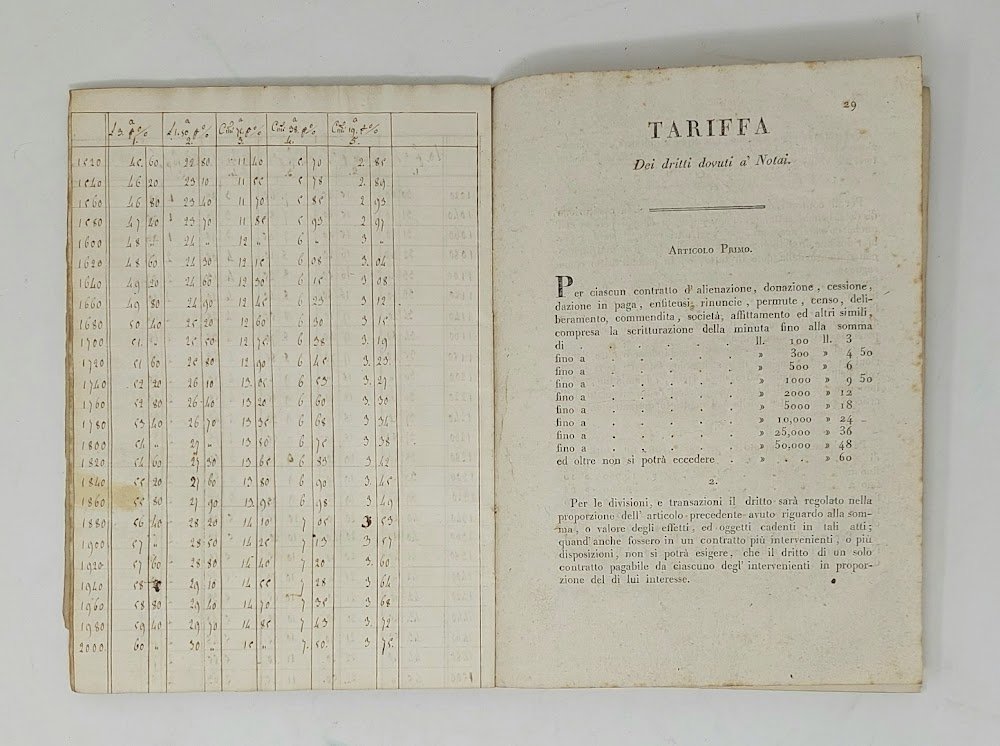 L 3. p% L 1.50 p% Cmi 75 p% Cmi 38. p% Cmi 19. p%
1. 2. 3. 4. 5.
1520 45. 60 22 80 11 40 5 70 2. 85
1540 46 20 23 10 11 55 5 78 2. 89
1560 46 80 23 40 11 70 5 85 2 93
1580 47 40 23 70 11 85 5 93 2 97
1600 48 " 24 " 12 " 6 " 3 "
1620 48 60 24 30 12 15 6 08 3.04
1640 49 20 24 60 12 30 6 15 3 08
1660 49 80 24 90 12 45 6 23 3 12
1680 50 40 25 20 12 60 6 30 3 15
1700 51 " 25 50 12 75 6 38 3.19
1720 51 60 25 80 12 90 6 45 3.23
1740 52 20 26 10 13 05 6 53 3.27
1760 52 80 26 40 13 20 6 60 3.30
1780 53 40 26 70 13 35 6 68 3 34
1800 54 " 27 " 13 50 6 75 3 38
1820 54 60 27 30 13 65 6 83 3.42
1840 55 20 27 60 13 80 6 90 3.45
1860 55 80 27 90 13 95 6 98 3 49
1880 56 40 28 20 14 10 7 05 3 53
1900 57 " 28 50 14 25 7 13 3 57
1920 57 60 28 80 14 40 7 20 3.60
1940 58 29 10 14 55 7 28 3.64
1960 58 80 29 40 14 70 7 35 3.68
1980 59 40 29 70 14 85 7 43 3.72
2000 60 " 30 " 15 " 7.50 3 75
29
TARIFFA
Dei dritti dovuti a' Notai.
ARTICOLO PRIMO.
Per ciascun contratto d'alienazione, donazione, cessione,
dazione in paga, enfiteusi, rinuncie, permute, censo, deli-
beramento, commendita, società, affittamento ed altri simili,
compresa la scritturazione della minuta fino alla somma
di . . . . . ll. 100 ll. 3
fino a . . . . . » 300 » 4 50
fino a . . . . . » 500 » 6
fino a . . . . . » 1000 » 9 50
fino a . . . . . » 2000 » 12
fino a . . . . . » 5000 » 18
fino a . . . . . » 10,000 » 24
fino a . . . . . » 25,000 » 36
fino a . . . . . » 50,000 » 48
ed oltre non si potrà eccedere . » . . » 60
2.
Per le divisioni, e transazioni il dritto sarà regolato nella
proporzione dell' articolo precedente avuto riguardo alla som-
ma, o valore degli effetti, ed oggetti cadenti in tali atti;
quand'anche fossero in un contratto più intervenienti, o più
disposizioni, non si potrà esigere, che il dritto di un solo
contratto pagabile da ciascuno degl' intervenienti in propor-
zione del di lui interesse.